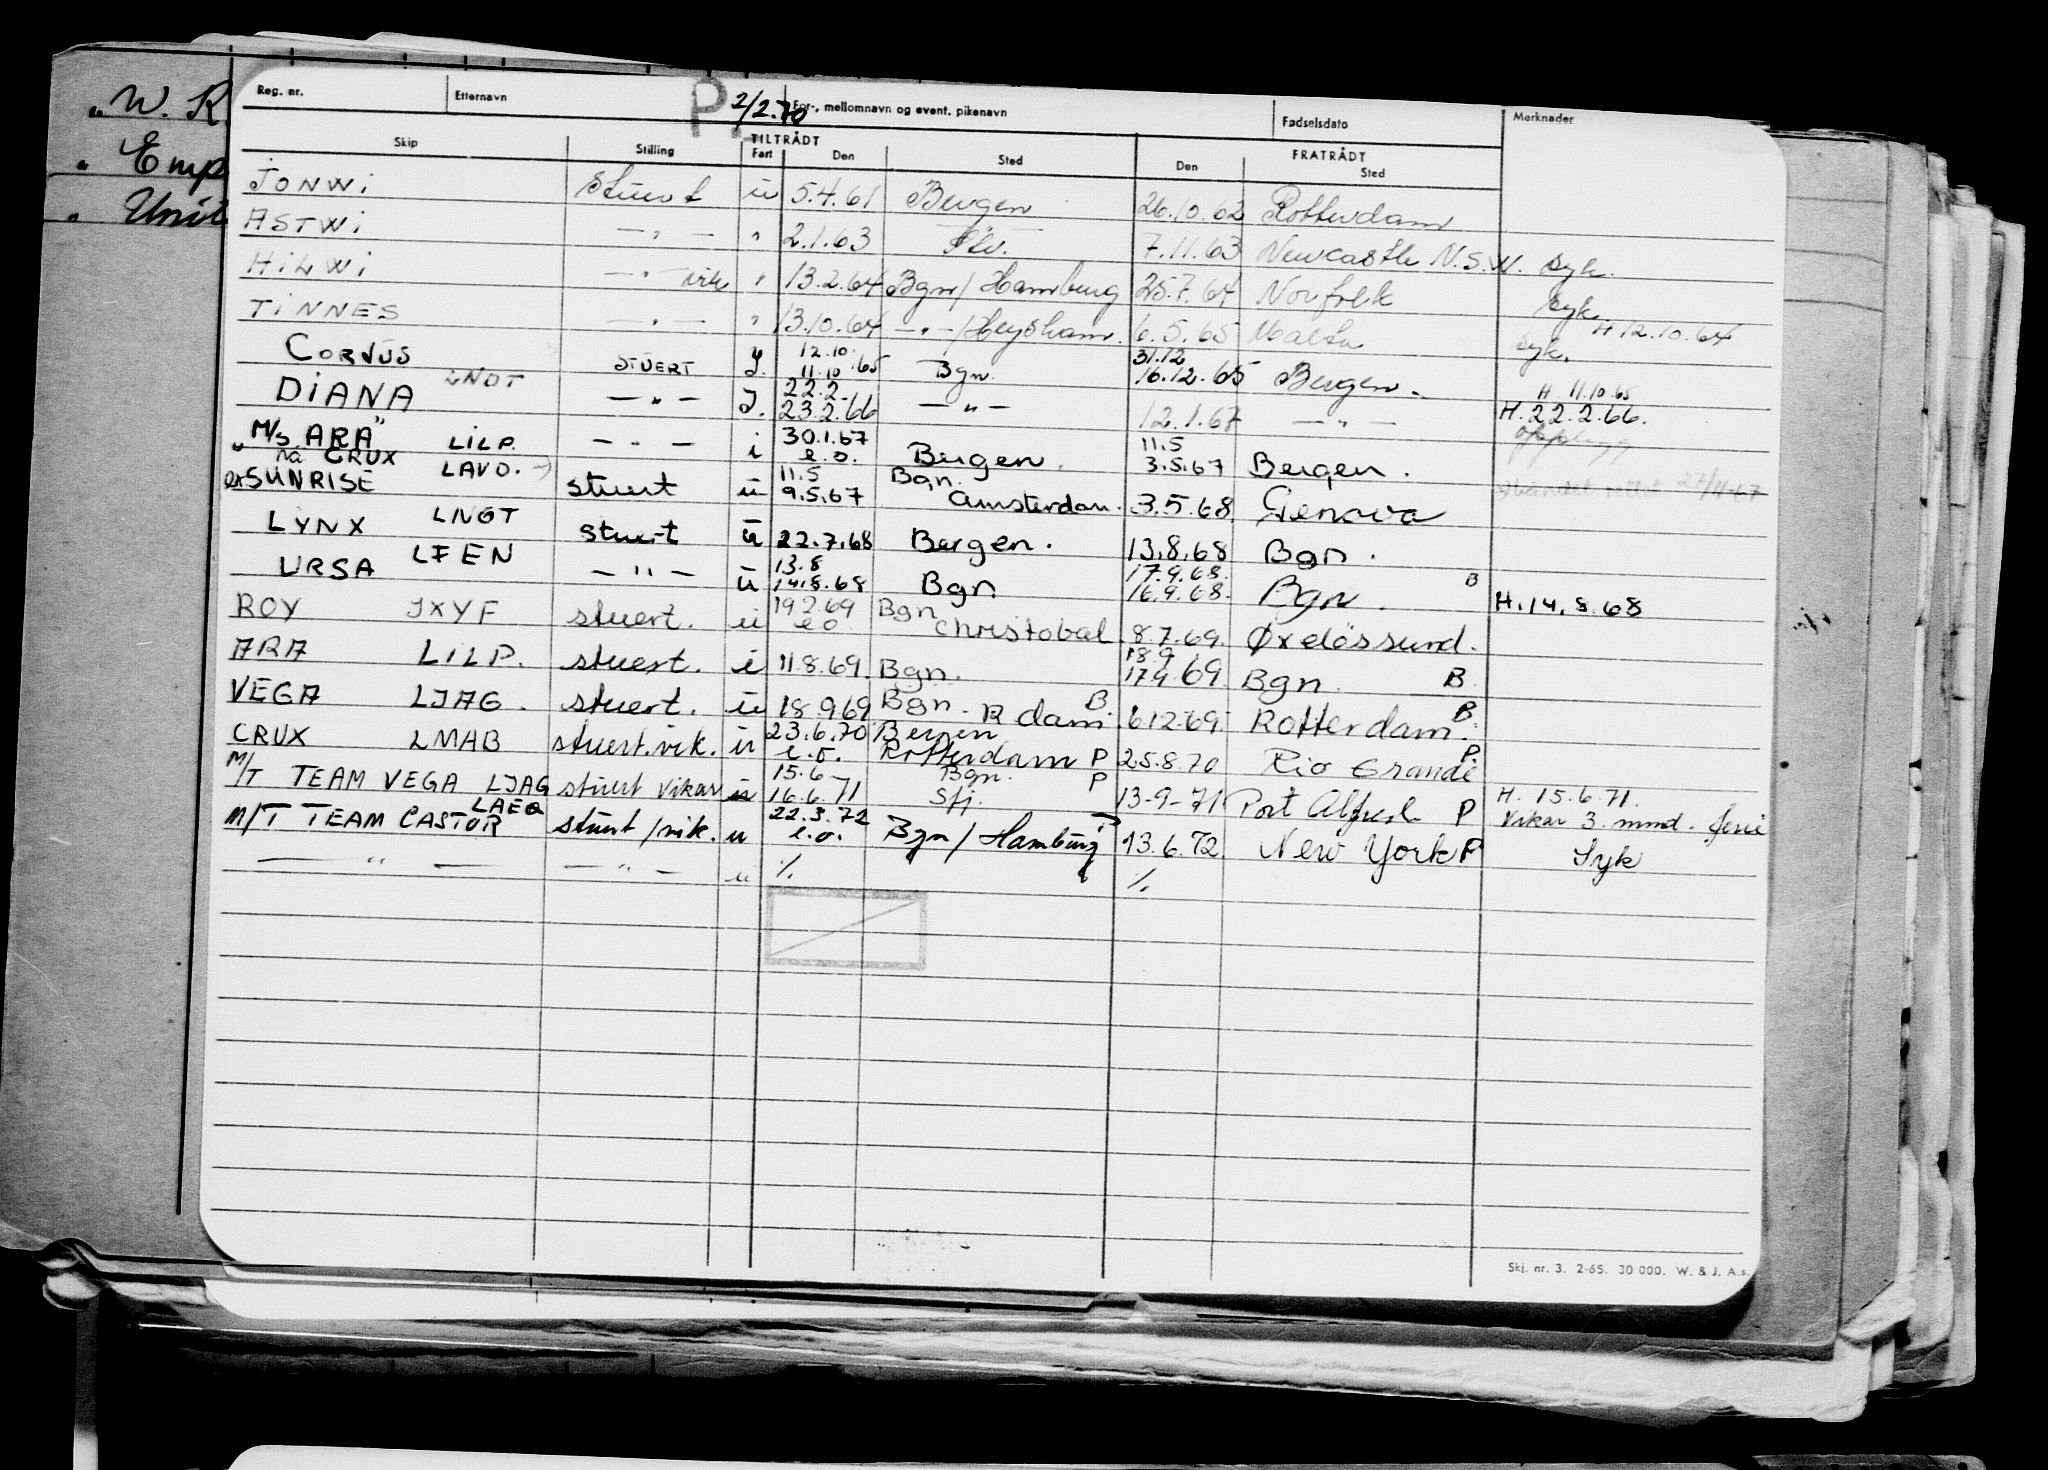 "W. R
" Emp
" Unit
Reg. nr. Etternavn P 2/2.70 For-, mellomnavn og event. pikenavn Fødselsdato Merknader
Skip Stilling TILTRÅDT Fart Den Sted FRATRÅDT Den Sted
JONWI Stuert u 5.4.61 Bergen 26.10.62 Rotterdam
ASTWI — " — " 2.1.63 7.11.63 Newcastle N.S.W. Syk.
HILWI — " — vik " 13.2.64 Bgn/Hamburg 25.7.64 Norfolk Syk.
TINNES — " — " 13.10.64 — " —/Heysham. 6.5.65 Malta Syk. H 12.10.64
CORVUS STUERT J. 12.10 11.10.65 Bgn. 31.12 16.12.65 Bergen. H. 11.10.65
DIANA LNDT — " — J. 22.2 23.2.66 — " — 12.1.67 — " — H. 22.2.66. opplagg
"M/S ARA" LILP. — " — i 30.1.67 e.o. Bergen. 11.5 3.5.67 Bergen.
nå CRUX
SUNRISE LAVO. stuert u 11.5 9.5.67 Bgn. Amsterdam. 3.5.68 Genova 27/11-67
LYNX LNGT stuert u 22.7.68 Bergen. 13.8.68 Bgn.
URSA LFEN — " — u 13.8 14.8.68 Bgn 17.9.68. 16.9.68. Bgn. B H. 14.8.68
ROY JXYF stuert. u 19.2.69 e.o. Bgn Christobal 8.7.69. Øxelössund.
ARA LILP. stuert. i 11.8.69. Bgn. 18.9 17.9 69 Bgn. B.
VEGA LJAG. stuert. u 18.9.69 Bgn. R dam B. 6.12.69. Rotterdam. B.
CRUX LMAB stuert.vik. u 23.6.70 e.o. Bergen Rotterdam P 25.8.70 Rio Grande P.
M/T TEAM VEGA LJAG stuert vikar u 15.6 16.6.71 Bgn. Stj. P 13-9-71 Port Alfred P H. 15.6.71. Vikar 3 mnd. ferie
M/T TEAM CASTOR LAEQ stuert/vik. u 22.3.72 e.o. Bgn/Hamburg P 13.6.72. New York P Syk
— " — — " — u %. %.
Skj. nr. 3. 2-65. 30 000. W. & J. A.s.